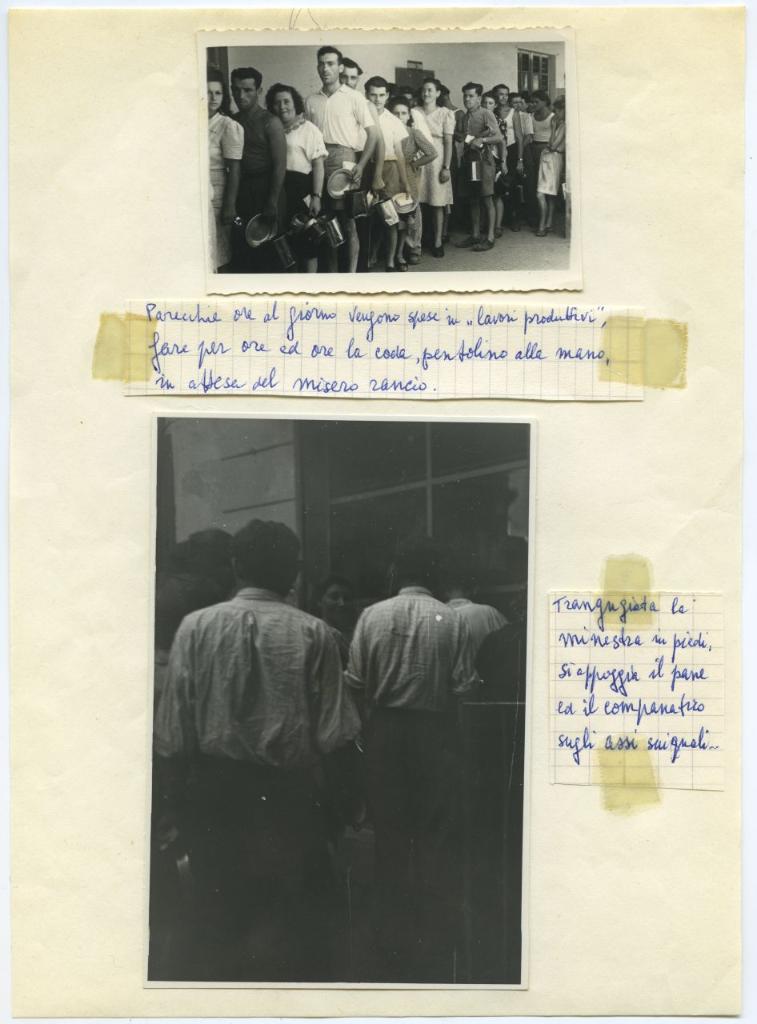 Parecchie ore al giorno vengono spese in „lavori produttivi",
fare per ore ed ore la coda, pentolino alla mano,
in attesa del misero rancio.
Trangugiata la
minestra in piedi,
si appoggia il pane
ed il companatico
sugli assi